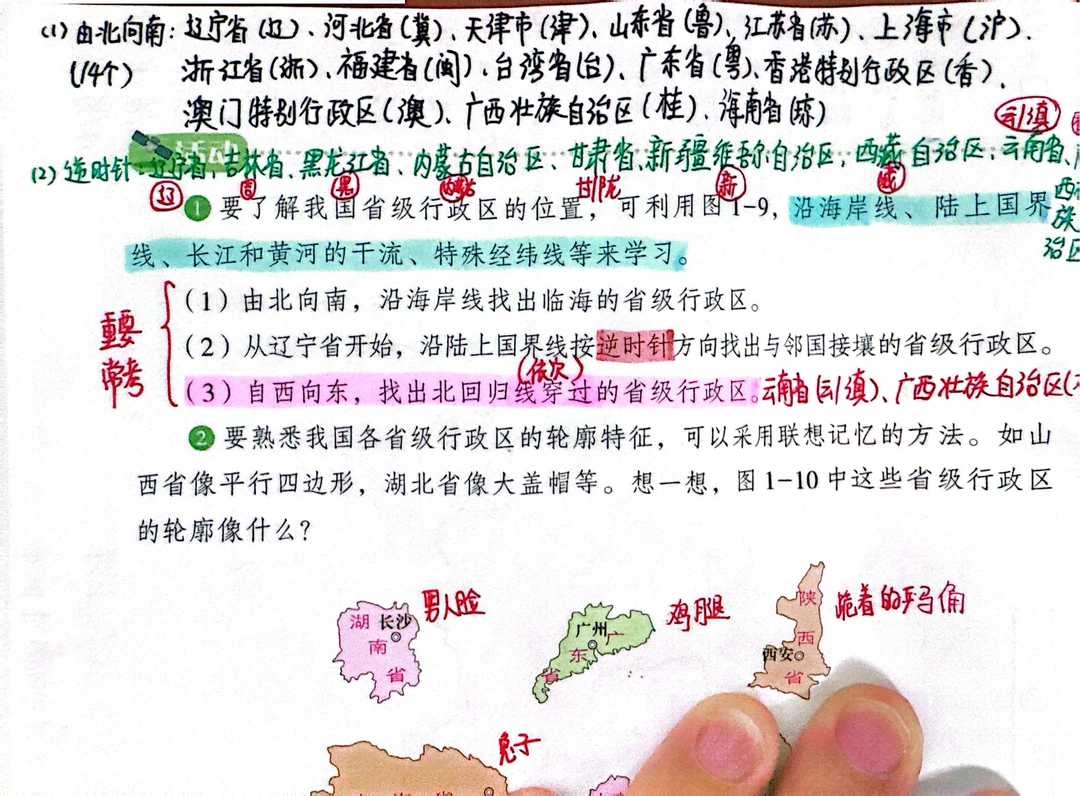 (1) 由北向南：辽宁省(辽)、河北省(冀)、天津市(津)、山东省(鲁)、江苏省(苏)、上海市(沪).
(14个) 浙江省(浙)、福建省(闽)、台湾省(台)、广东省(粤)、香港特别行政区(香).
澳门特别行政区(澳)、广西壮族自治区(桂)、海南省(琼)
云/滇
活动
(2) 逆时针：辽宁省、吉林省、黑龙江省、内蒙古自治区、甘肃省、新疆维吾尔自治区、西藏自治区、云南省、
辽 吉 黑 内蒙古 甘/陇 新 藏
1 要了解我国省级行政区的位置，可利用图1-9，沿海岸线、陆上国界
族
治区
线、长江和黄河的干流、特殊经纬线等来学习。
(1) 由北向南，沿海岸线找出临海的省级行政区。
重要
常考
(2) 从辽宁省开始，沿陆上国界线按逆时针方向找出与邻国接壤的省级行政区。
(依次)
(3) 自西向东，找出北回归线穿过的省级行政区。云南省(云/滇)、广西壮族自治区(
2 要熟悉我国各省级行政区的轮廓特征，可以采用联想记忆的方法。如山
西省像平行四边形，湖北省像大盖帽等。想一想，图1-10中这些省级行政区
的轮廓像什么？
湖南省 长沙 男人脸
广东省 广州 鸡腿
陕西省 西安 跪着的兵马俑
兔子